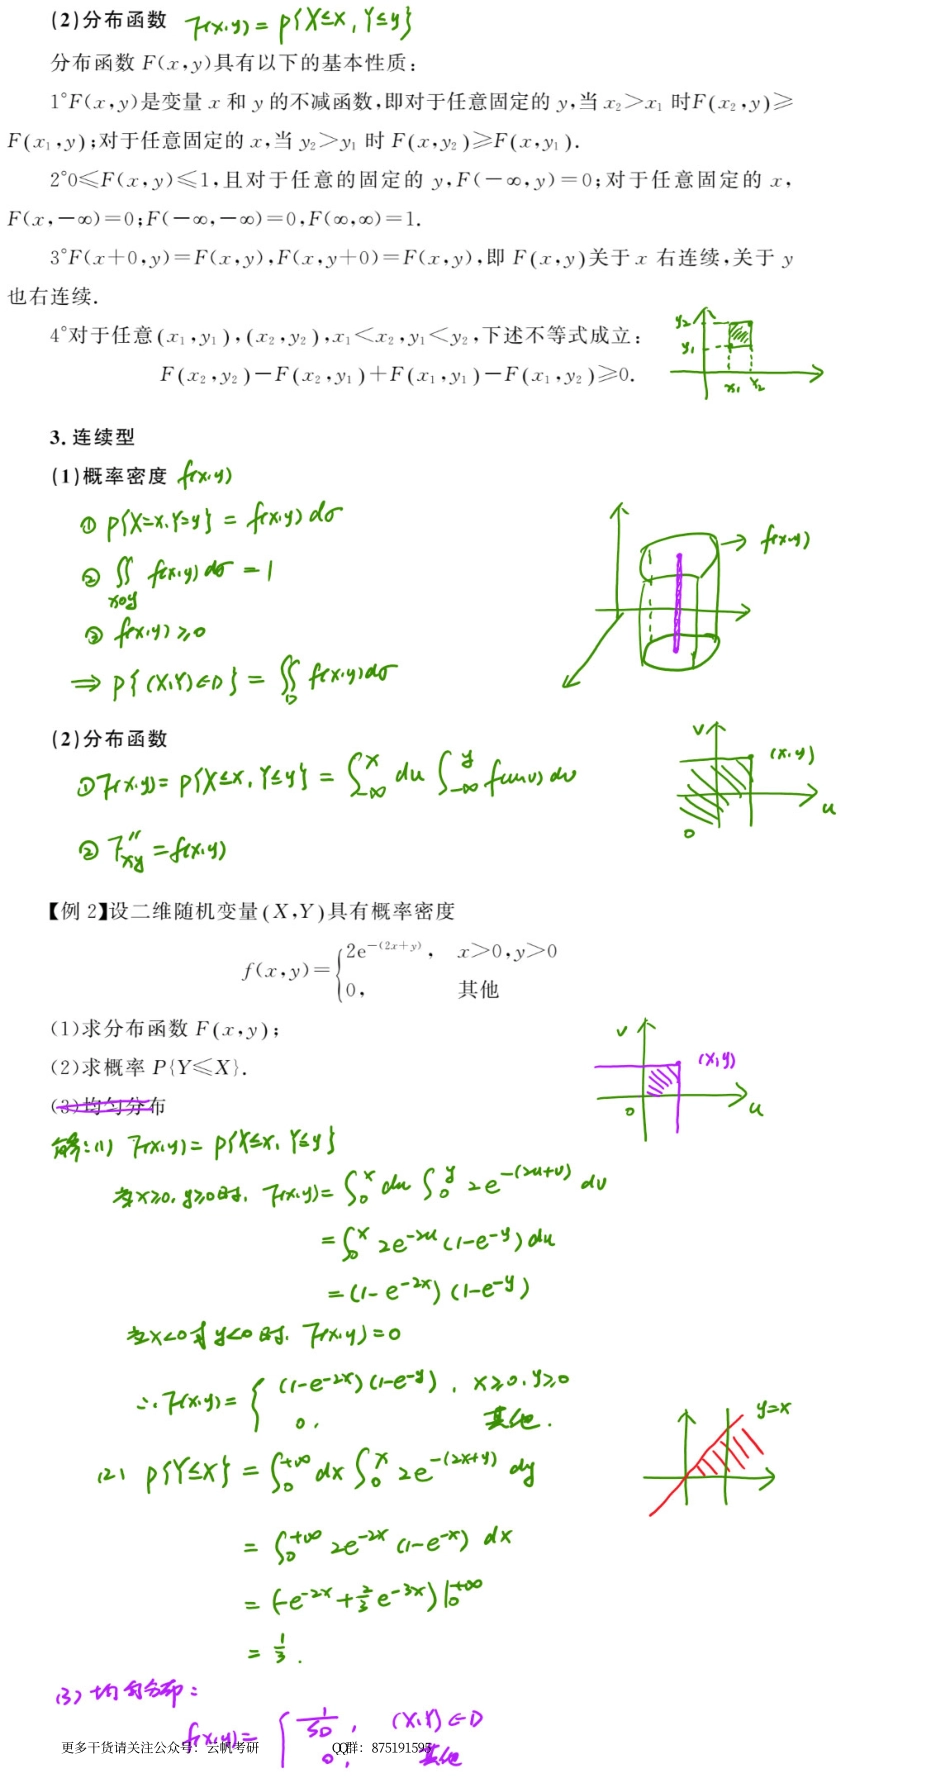 (2)分布函数 F(x,y)=P{X≤x,Y≤y}
分布函数 F(x,y)具有以下的基本性质:
1°F(x,y)是变量 x 和 y 的不减函数,即对于任意固定的 y,当 x₂>x₁ 时F(x₂,y)≥
F(x₁,y);对于任意固定的 x,当 y₂>y₁ 时 F(x,y₂)≥F(x,y₁).
2°0≤F(x,y)≤1,且对于任意的固定的 y,F(-∞,y)=0;对于任意固定的 x,
F(x,-∞)=0;F(-∞,-∞)=0,F(∞,∞)=1.
3°F(x+0,y)=F(x,y),F(x,y+0)=F(x,y),即 F(x,y)关于 x 右连续,关于 y
也右连续.
4°对于任意(x₁,y₁),(x₂,y₂),x₁<x₂,y₁<y₂,下述不等式成立:
F(x₂,y₂)-F(x₂,y₁)+F(x₁,y₁)-F(x₁,y₂)≥0.
y₂
y₁
x₁ x₂
3.连续型
(1)概率密度 f(x,y)
① P{X=x,Y=y} = f(x,y)dσ
② ∬ f(x,y)dσ = 1
xoy
③ f(x,y)≥0
⇒ P{(X,Y)∈D} = ∬ f(x,y)dσ
D
→ f(x,y)
(2)分布函数
①F(x,y)=P{X≤x,Y≤y} = ∫_{-∞}^{x} du ∫_{-∞}^{y} f(u,v)dv
② F″xy = f(x,y)
v
(x,y)
u
0
【例 2】设二维随机变量(X,Y)具有概率密度
f(x,y)={2e^{-(2x+y)}, x>0,y>0
0, 其他
(1)求分布函数 F(x,y);
(2)求概率 P{Y≤X}.
(3)均匀分布
v
(x,y)
0
u
解:(1) F(x,y)=P{X≤x,Y≤y}
当x≥0,y≥0时, F(x,y)=∫_0^x du ∫_0^y 2e^{-(2u+v)} dv
=∫_0^x 2e^{-2u}(1-e^{-y})du
=(1-e^{-2x})(1-e^{-y})
当x<0或y<0时, F(x,y)=0
∴F(x,y)={ (1-e^{-2x})(1-e^{-y}), x≥0,y≥0
0, 其他.
y=x
(2) P{Y≤X} = ∫_0^{+∞}dx∫_0^x 2e^{-(2x+y)} dy
= ∫_0^{+∞} 2e^{-2x}(1-e^{-x}) dx
= (-e^{-2x}+\frac{2}{3}e^{-3x})|_0^{+∞}
= \frac{1}{3}.
(3)均匀分布:
f(x,y)={ \frac{1}{S_D}, (X,Y)∈D
0, 其他
更多干货请关注公众号: 云帆考研 QQ群: 875191595